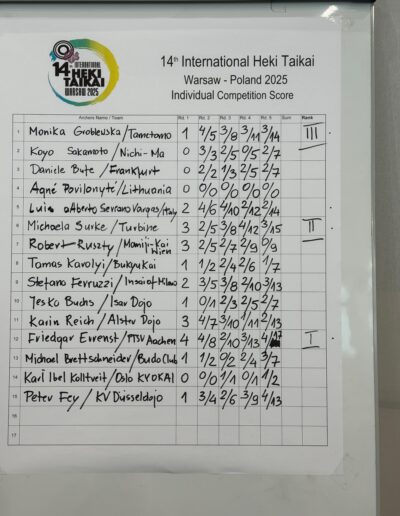 14th INTERNATIONAL
HEKI
TAIKAI
WARSAW 2025
14th International Heki Taikai
Warsaw - Poland 2025
Individual Competition Score
Archers Name / Team Rd. 1 Rd. 2 Rd. 3 Rd. 4 Rd. 5 Sum Rank
1 Monika Groblewska/Tametomo 1 4/5 3/8 3/11 3/14 III
2 Koyo Sakamoto / Nichi-Ma 0 3/3 2/5 0/5 2/7
3 Daniele Bute / Frankfurt 0 2/2 1/3 2/5 2/7
4 Agnė Povilonytė/Lithuania 0 0/0 0/0 0/0 0/0
5 Luis Alberto Serrano Vargas/Italy 2 4/6 4/10 2/12 2/14
6 Michaela Surke / Turbine 3 2/5 3/8 4/12 3/15 II
7 Robert Ruszty/Momiji-Kai Wien 3 2/5 2/7 2/9 0/9
8 Tamas Karolyi/Bukyu Kai 1 1/2 2/4 2/6 1/7
9 Stefano Ferruzzi/ 2 3/5 3/8 2/10 3/13
10 Jesko Buchs / Isar Dojo 1 0/1 2/3 2/5 2/7
11 Karin Reich/Alster Dojo 3 4/7 3/10 1/11 2/13
12 Friedgar Evrenst/PTSV Aachen 4 4/8 2/10 3/13 4/17 I
13 Michael Brettschneider/Budo Club 1 1/2 0/2 2/4 3/7
14 Karl Ibel Kolltveit/Oslo KYOKAI 0 0/0 1/1 0/1 1/2
15 Peter Fey / KV Düsseldojo 1 3/4 2/6 3/9 4/13
16
17